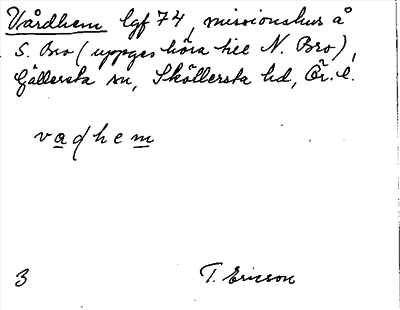 Vårdhem lgf 74, missionshus å
S. Bro (uppges höra till N. Bro),
Gällersta sn, Sköllersta hd, Ör. l.
vadhem
3 T. Ericson